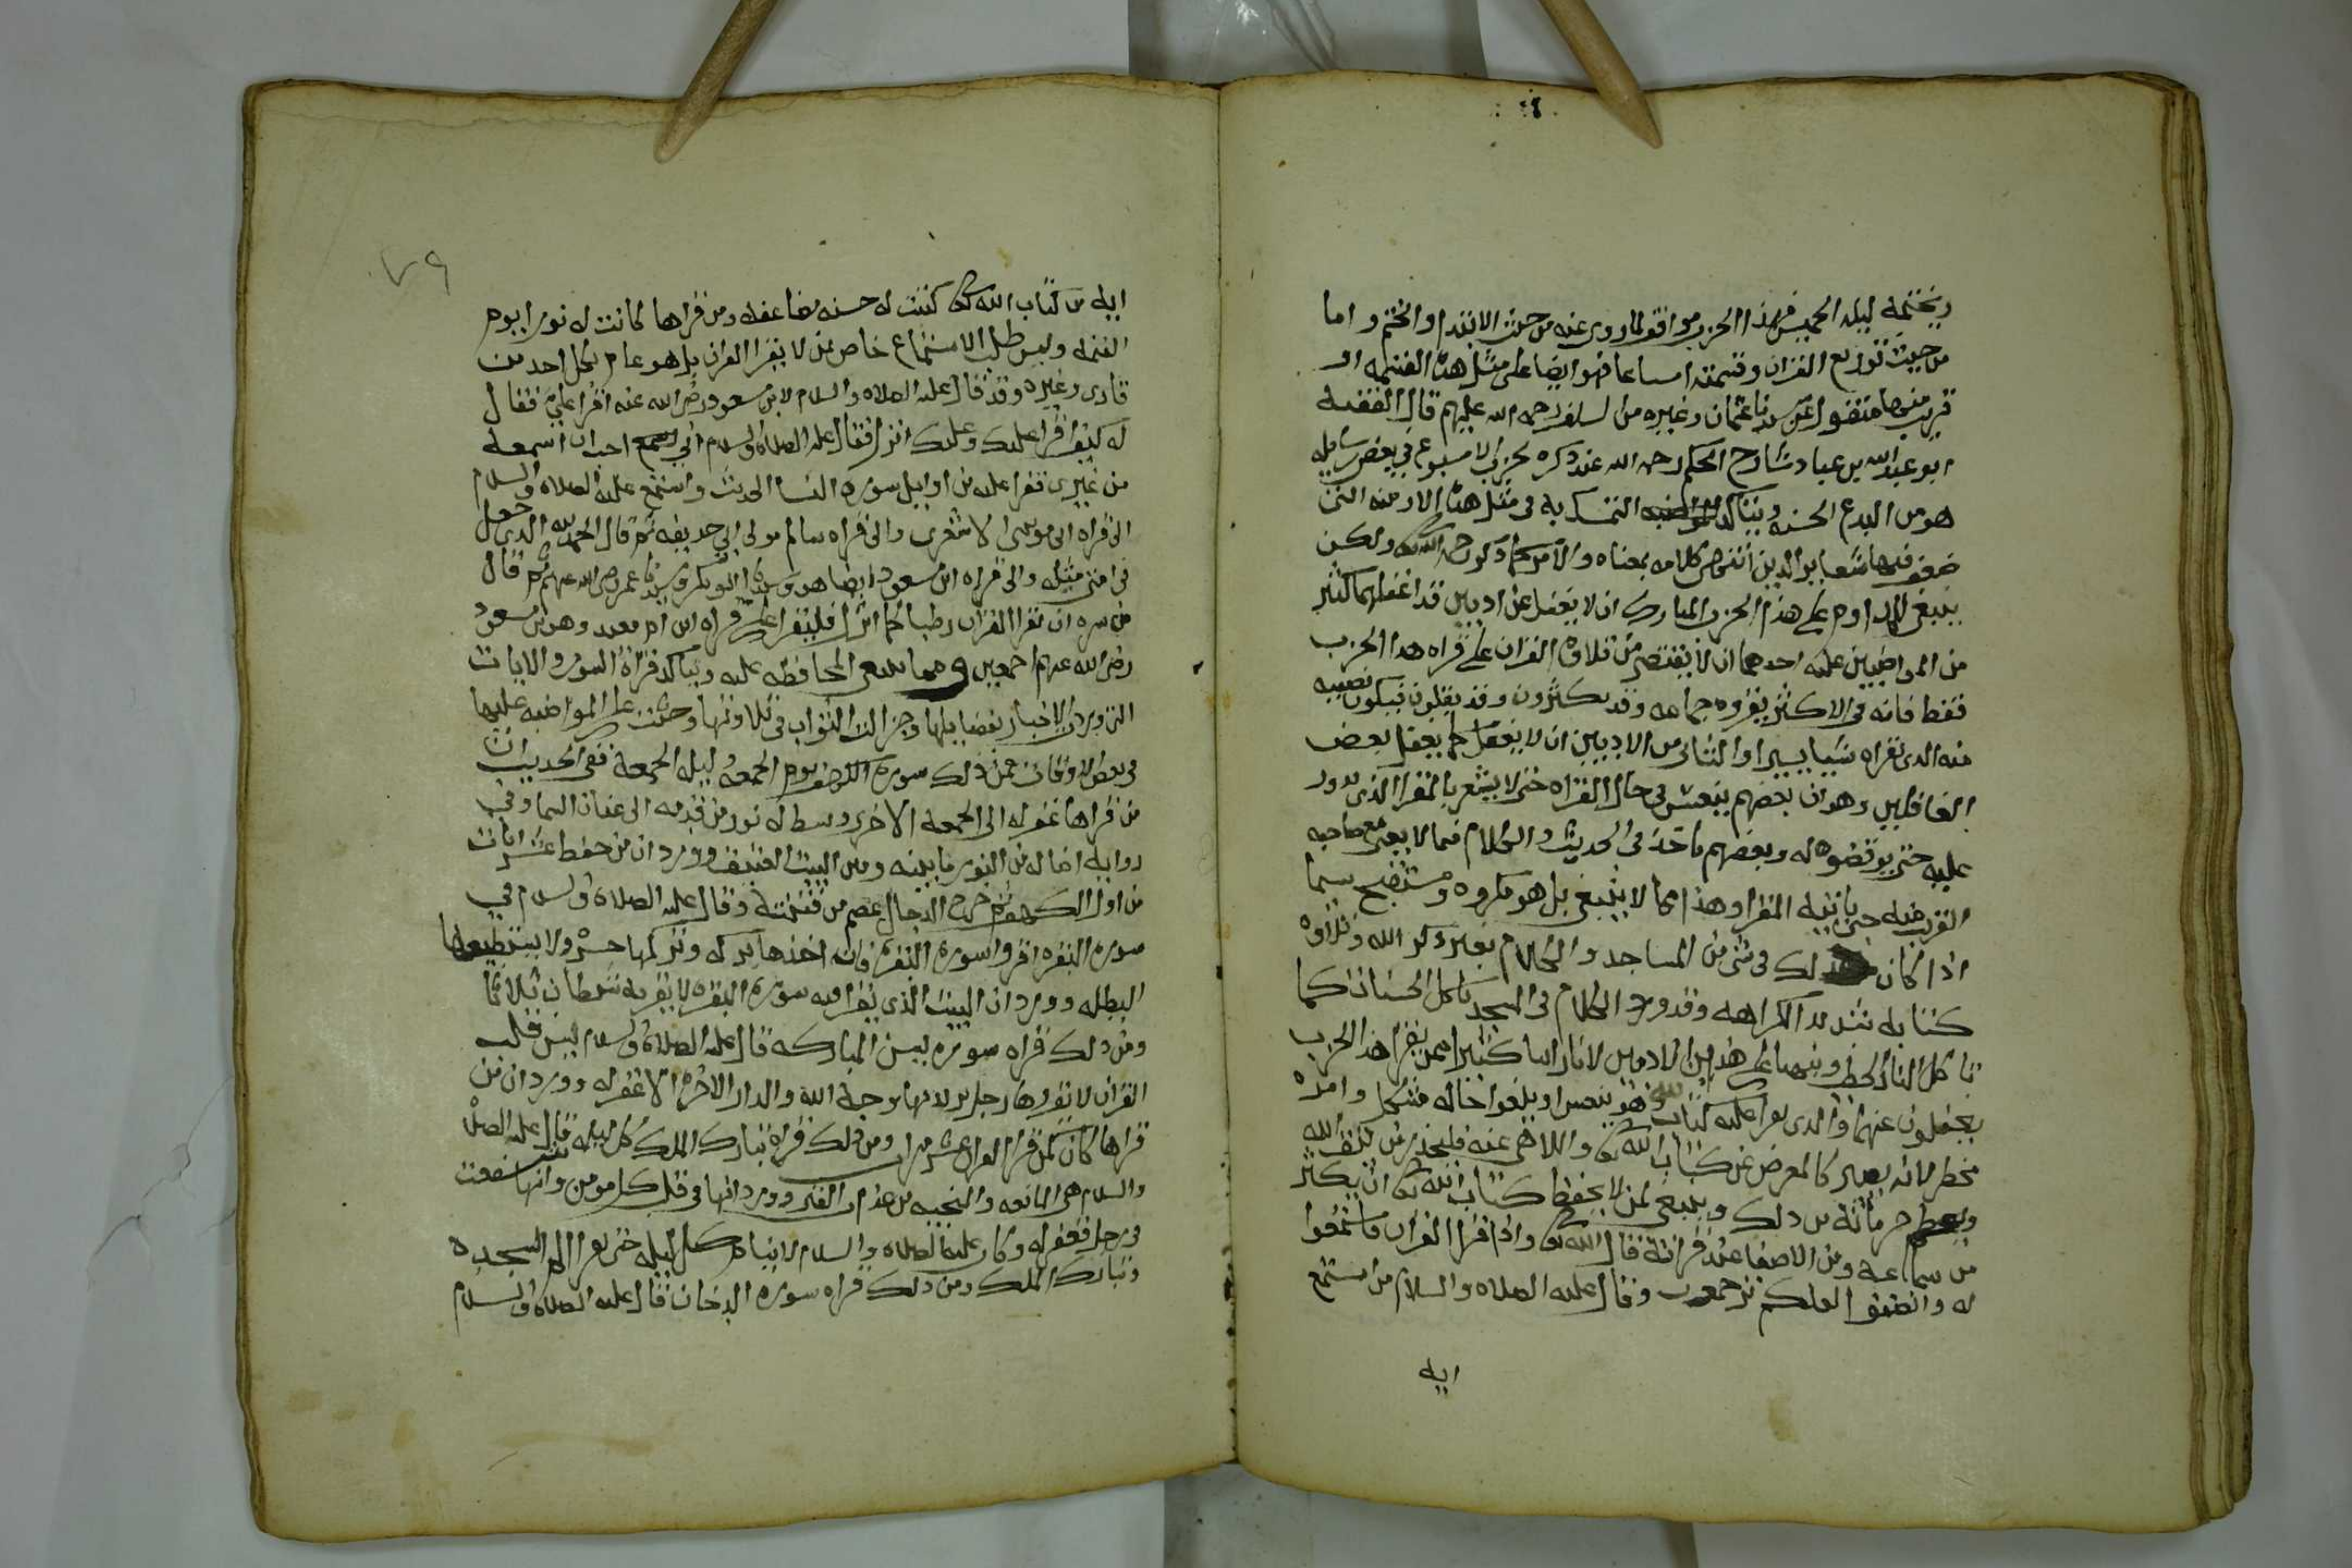 ويختمه ليلة الخميس فهذا الحزب موافق لما روى عنه من حيث الابتدا والختم واما
من حيث توزيع القران وقسمته اسباعا فهو ايضا على مثل هذه القسمه او
قريب منها منقول عن سيدنا عثمان وغيره من السلف رحمة الله عليهم قال الفقيه
ابو عبد الله بن عباد شارح الحكم رحمه الله عند ذكره لحزب الاسبوع في بعض رسايله
هو من البدع الحسنه ويتاكد التمسك به في مثل هذه الازمنه التى
ضعفت فيها شعاير الدين انتهى كلامه بمعناه والامر كما ذكر رحمه الله تعالى ولكن
ينبغي للمداوم على هذا الحزب المبارك ان لا يغفل عن ادبين قد اغفلهما كثير
من المواظبين عليه احدهما ان لا يقتصر من تلاوة القران على قراه هذا الحزب
فقط فانه في الاكثر يقروه جماعه وقد يكثرون وقد يقلون فيكون نصيبه
منه الذى يقراه شيا يسيرا والثانى من الادبين ان لا يغفل كما يغفل بعض
الغافلين وهو ان بعضهم ينعس في حال القراه حتى لا يشعر بالمقرا الذى يدور
عليه حتى يوقضوه له وبعضهم ياخذ في الحديث والكلام فيما لا يعنى مع صاحبه
القريب منه حتى ياتيه المقرا وهذا مما لا ينبغي بل هو مكروه ومستقبح سيما
اذا كان ذلك في شى من المساجد والكلام بغير ذكر الله وتلاوة
كتابه شديد الكراهه وقد ورد الكلام في المسجد ياكل الحسنات كما
تاكل النار الحطب ونبهنا على هذين الادبين لانا راينا كثيرا ممن يقرا هذا الحزب
يغفلون عنهما والذى يقرا عليه كتاب الله وهو ينعس او يلغوا حاله مشكل وامره
مخطر لانه يصير كالمعرض عن كتاب الله تعالى واللاهى عنه فليحذر من مقت الله
وليعظم حرماته من ذلك وينبغي لمن لا يحفظ كتاب الله تعالى ان يكثر
من سماعه ومن الاصغا عند قراته قال الله تعالى واذا قرا القران فاستمعوا
له وانصتوا لعلكم ترحمون وقال عليه الصلاه والسلام من استمع
ايه
٧٩
ايه من كتاب الله تعالى كتبت له حسنه مضاعفه ومن قراها كانت له نورا يوم
القيمه وليس طلب الاستماع خاص بمن لا يقرا القران بل هو عام لكل احد من
قارى وغيره وقد قال عليه الصلاه والسلام لابن مسعود رضى الله عنه اقرا علي فقال
له كيف اقرا عليك وعليك انزل فقال عليه الصلاة والسلام اني احب ان اسمعه
من غيرى فقرا عليه من اوايل سورة النسا الحديث واستمع عليه الصلاه والسلام
الى قراه ابى موسى الاشعرى والى قراه سالم مولى ابي حذيفه ثم قال الحمد لله الذى جعل
في امتى مثله والى قراه ابن مسعود ايضا هو وسيدنا ابو بكر وسيدنا عمر رضى الله عنهم ثم قال
من سره ان يقرا القران رطبا كما انزل فليقرا على قراه ابن ام معبد وهو ابن مسعود
رضى الله عنهم اجمعين ومما ينبغى المحافظه عليه ويتاكد قراة السور والايات
التى وردت الاخبار بفضايلها وجزالة الثواب في تلاوتها وحثت على المواضبه عليها
في بعض الاوقات فمن ذلك سورة الكهف يوم الجمعه وليله الجمعة ففى الحديث ان
من قراها غفر له الى الجمعه الاخرى وسطا له نور من قدمه الى عنان السما وفي
روايه اضا له من النور ما بينه وبين البيت العتيق وورد ان من حفظ عشر ايات
من اول الكهف ثم خرج الدجال عصم من فتنته وقال عليه الصلاة والسلام في
سورة البقره اقروا سورة البقرة فان اخذها بركه وتركها حسرة ولا يستطيعها
البطله وورد ان البيت الذى يقرا فيه سورة البقره لا يقربه شيطان ثلاثا
ومن ذلك قراه سورة يس المباركه قال عليه الصلاة والسلام يس قلب
القران لا يقروها رجل يريد بها وجه الله والدار الاخره الا غفر له وورد ان من
قراها كان كمن قرا القران عشر مرات ومن ذلك قراة تبارك الملك كل ليله قال عليه الصلاة
والسلام هى المانعه والمنجيه من عذاب القبر وورد انها في قلب كل مومن وانها شفعت
في رجل فغفر له وكان عليه الصلاه والسلام لا ينام كل ليله حتى يقرا الم السجده
وتبارك الملك ومن ذلك قراه سورة الدخان قال عليه الصلاة والسلام